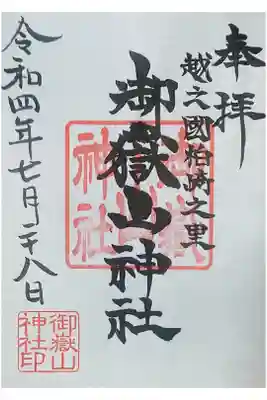 奉拝
越之國柏崎之里
御嶽山神社
令和四年七月二十八日
御嶽山
神社印